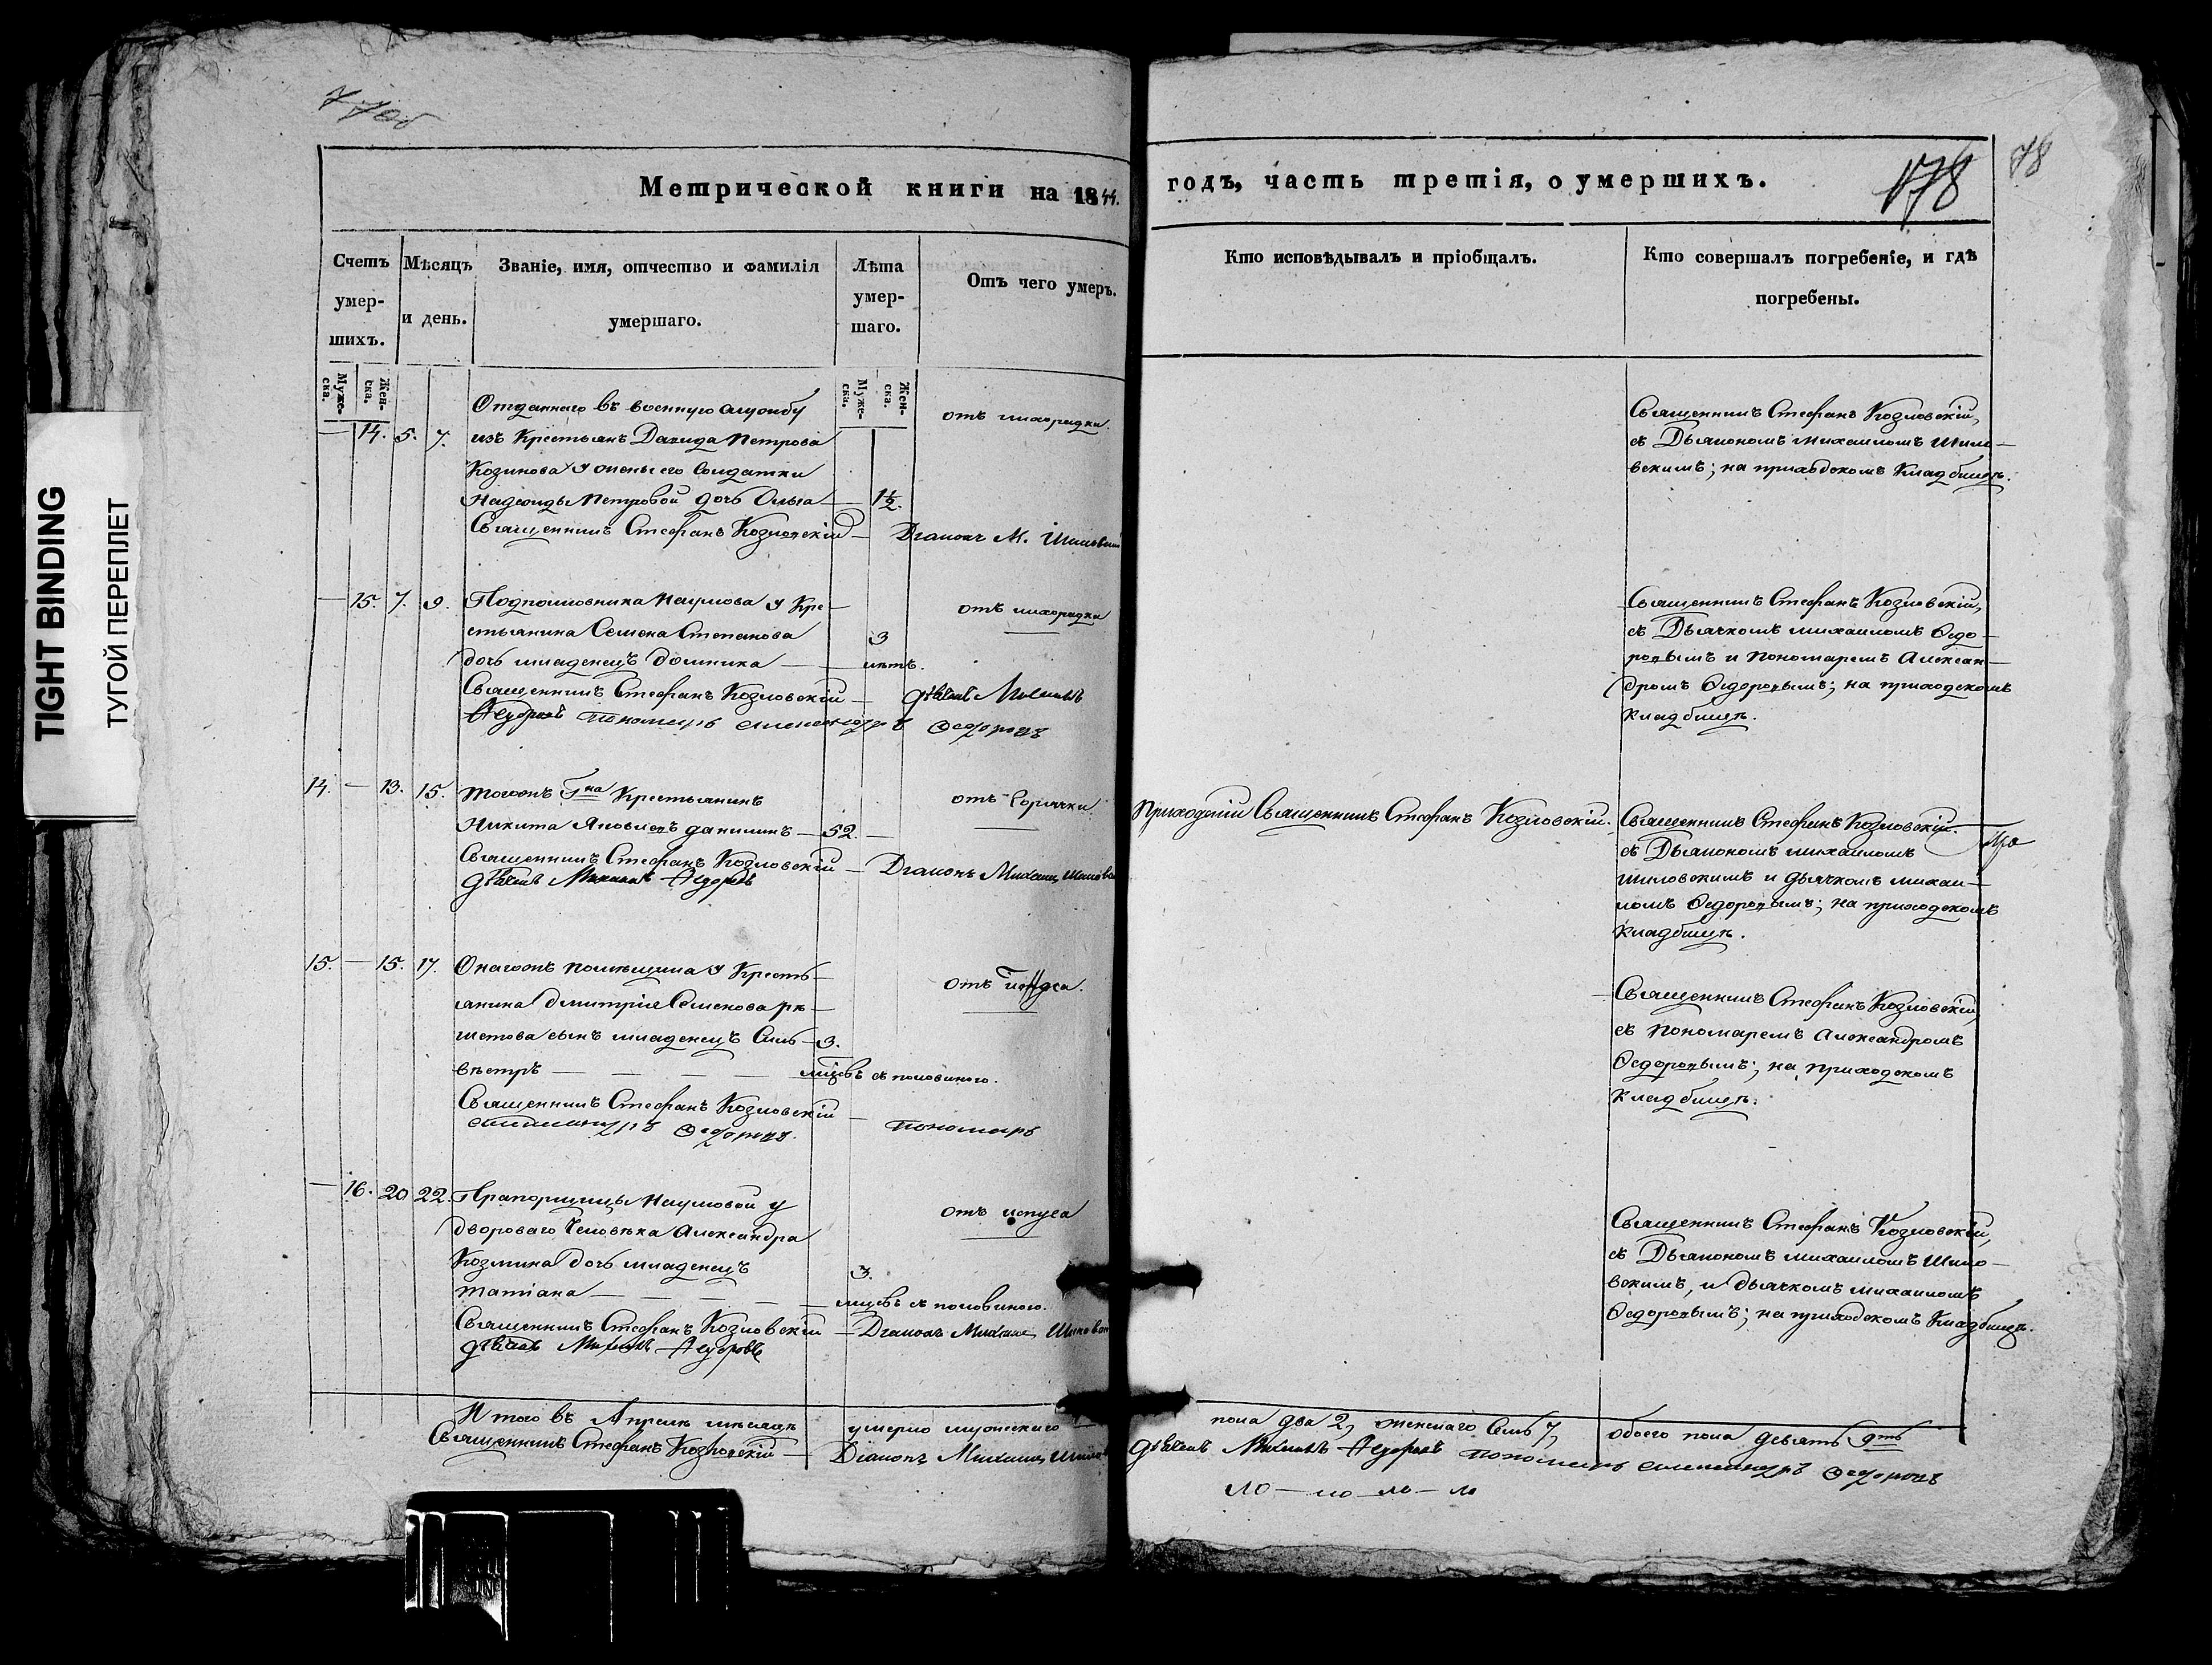 TIGHT BINDING
ТУГОЙ ПЕРЕПЛЕТ
78
178
Метрической книги на 1844. годъ, часть третія, о умершихъ.
Счетъ умер-шихъ.
Мѣсяцъ и день.
Званіе, имя, отчество и фамилія умершаго.
Лѣта умер-шаго.
Отъ чего умеръ.
Кто исповѣдывалъ и пріобщалъ.
Кто совершалъ погребеніе, и гдѣ погребены.
Муже-ска.
Жен-ска.
Муже-ска.
Жен-ска.
— 14. 5. 7.
Отданнаго въ военную службу
изъ Крестьянъ Давида Петрова
Козинова у жены его Солдатки
Надежды Петровой дочь Ольга — 1½.
отъ лихорадки.
Священникъ Стефанъ Козловскій — Діаконъ М. Шиловскій
Священникъ Стефанъ Козловскій,
съ Дьякономъ Михаиломъ Шило-
вскимъ; на приходскомъ Кладбищѣ.
— 15. 7. 9.
Подполковника Наумова у Кре-
стьянина Семена Степанова 3
дочь младенецъ Домника — лѣтъ.
отъ лихорадки
Священникъ Стефанъ Козловскій — дьячекъ Михаилъ
Федоровъ пономарь Александръ Федоровъ
Священникъ Стефанъ Козловскій,
съ Дьячкомъ Михаиломъ Федо-
ровымъ и Пономаремъ Алексан-
дромъ Федоровымъ; на приходскомъ
Кладбищѣ.
14. — 13. 15.
Тогожъ Гна Крестьянинъ
Никита Яковлевъ Данилинъ — 52. —
отъ Горячки
Священникъ Стефанъ Козловскій — Діаконъ Михаилъ Шиловск
дьячекъ Михаилъ Федоровъ
Приходскій Священникъ Стефанъ Козловскій.
Священникъ Стефанъ Козловскій.
съ Дьякономъ Михаиломъ
Шиловскимъ и дьячкомъ Михаи-
ломъ Федоровымъ; на приходскомъ
Кладбищѣ.
15. — 15. 17.
Онагожъ помѣщика у Кресть-
янина Дмитрія Семенова Рѣ-
шетова сынъ младенецъ Силь- 3.
вестръ — — — — мцовъ съ половиною.
Священникъ Стефанъ Козловскій — пономарь
Александръ Федоровъ.
Священникъ Стефанъ Козловскій,
съ Пономаремъ Александромъ
Федоровымъ; на приходскомъ
Кладбищѣ.
— 16. 20 22.
Прапорщицы Наумовой у
двороваго Человѣка Александра
Козмина дочь младенецъ 3.
Татіана — — — — мцовъ съ половиною.
Священникъ Стефанъ Козловскій — Діаконъ Михаилъ Шиловск
дьячекъ Михаилъ Федоровъ
Священникъ Стефанъ Козловскій,
съ Дьякономъ Михаиломъ Шило-
вскимъ, и дьячкомъ Михаиломъ
Федоровымъ; на приходскомъ Кладбищѣ.
Итого въ Апрелѣ мѣсяцѣ умерло мужескаго пола два 2, женскаго Семь 7, обоего пола девять 9ть
Священникъ Стефанъ Козловскій — Діаконъ Михаилъ Шилов дьячекъ Михаилъ Федоровъ пономарь Александръ Федоровъ